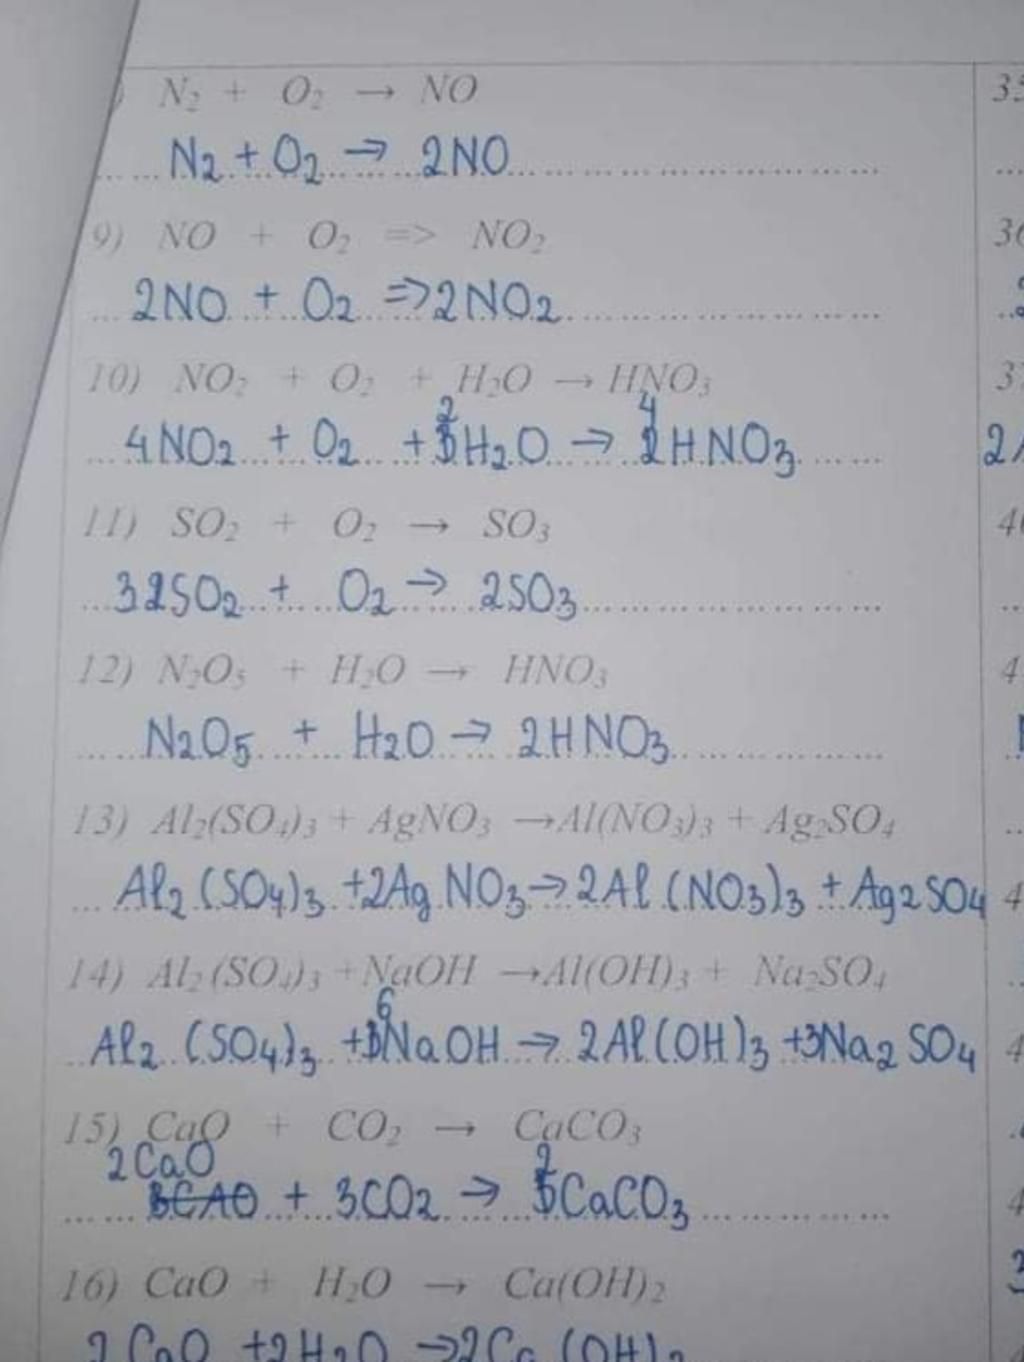 N₂ + O₂ → NO 35
N₂ + O₂ → 2NO
9) NO + O₂ => NO₂ 36
2NO + O₂ => 2NO₂ 2
10) NO₂ + O₂ + H₂O → HNO₃ 37
2 4
4NO₂ + O₂ + H₂O → HNO₃ 2
11) SO₂ + O₂ → SO₃ 40
32SO₂ + O₂ → 2SO₃
12) N₂O₅ + H₂O → HNO₃ 4
N₂O₅ + H₂O → 2HNO₃
13) Al₂(SO₄)₃ + AgNO₃ → Al(NO₃)₃ + Ag₂SO₄
Al₂(SO₄)₃ + 2AgNO₃ → 2Al(NO₃)₃ + Ag₂SO₄ 4
14) Al₂(SO₄)₃ + NaOH → Al(OH)₃ + Na₂SO₄
6
Al₂(SO₄)₃ + NaOH → 2Al(OH)₃ + 3Na₂SO₄ 4
15) CaO + CO₂ → CaCO₃
2CaO 2
3CAO + 3CO₂ → CaCO₃ 4
16) CaO + H₂O → Ca(OH)₂ 3
2CaO + 2H₂O → 2Ca(OH)₂